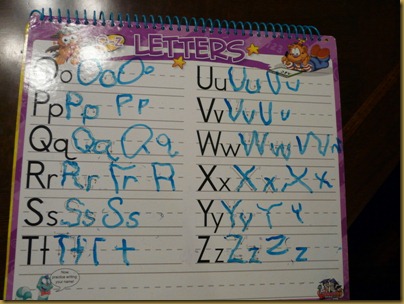 LETTERS
Oo Oo Oo
Pp Pp Pp
Qq Qq Qq
Rr Rr Rr R
Ss Ss Ss
Tt Tt T t
Uu Uu Uu
Vv Vv Vv
Ww Ww Ww
Xx Xx Xx
Yy Yy Yy
Zz Zz Zz
Now,
practice writing
your name!